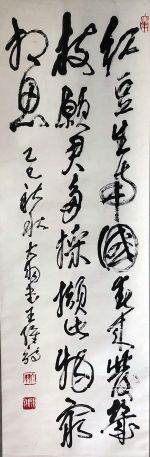 紅豆生南國春来發幾
枝願君多採擷此物最
相思 乙巳秋 書王維詩